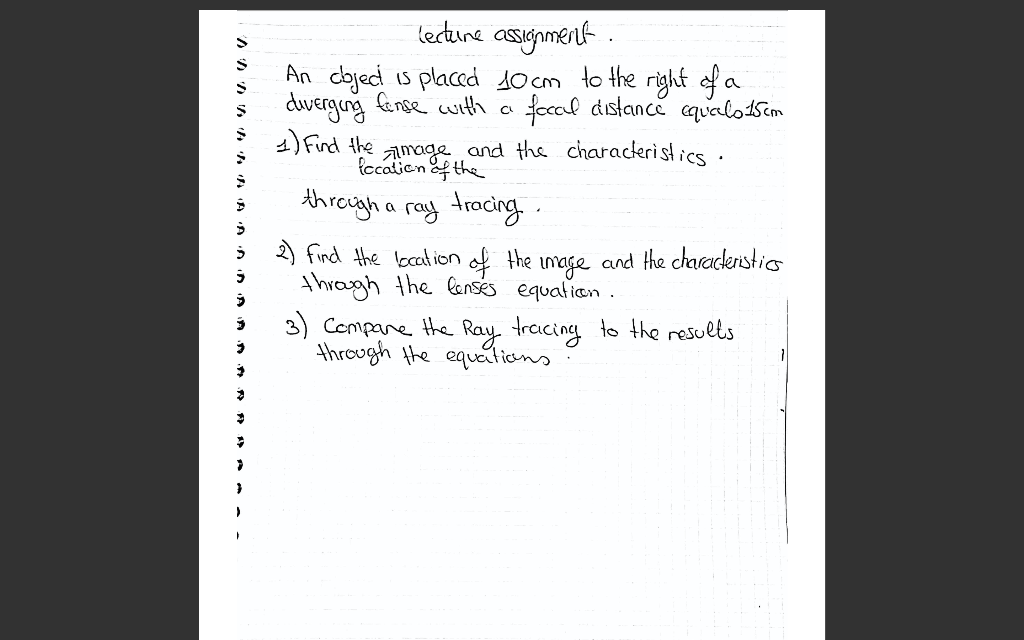 lecture assignment.
An object is placed 10cm to the right of a
diverging lense with a focal distance equals 15cm
1) Find the image and the characteristics.
location of the
through a ray tracing.
2) find the location of the image and the characteristics
through the lenses equation.
3) Compare the Ray tracing to the results
through the equations.